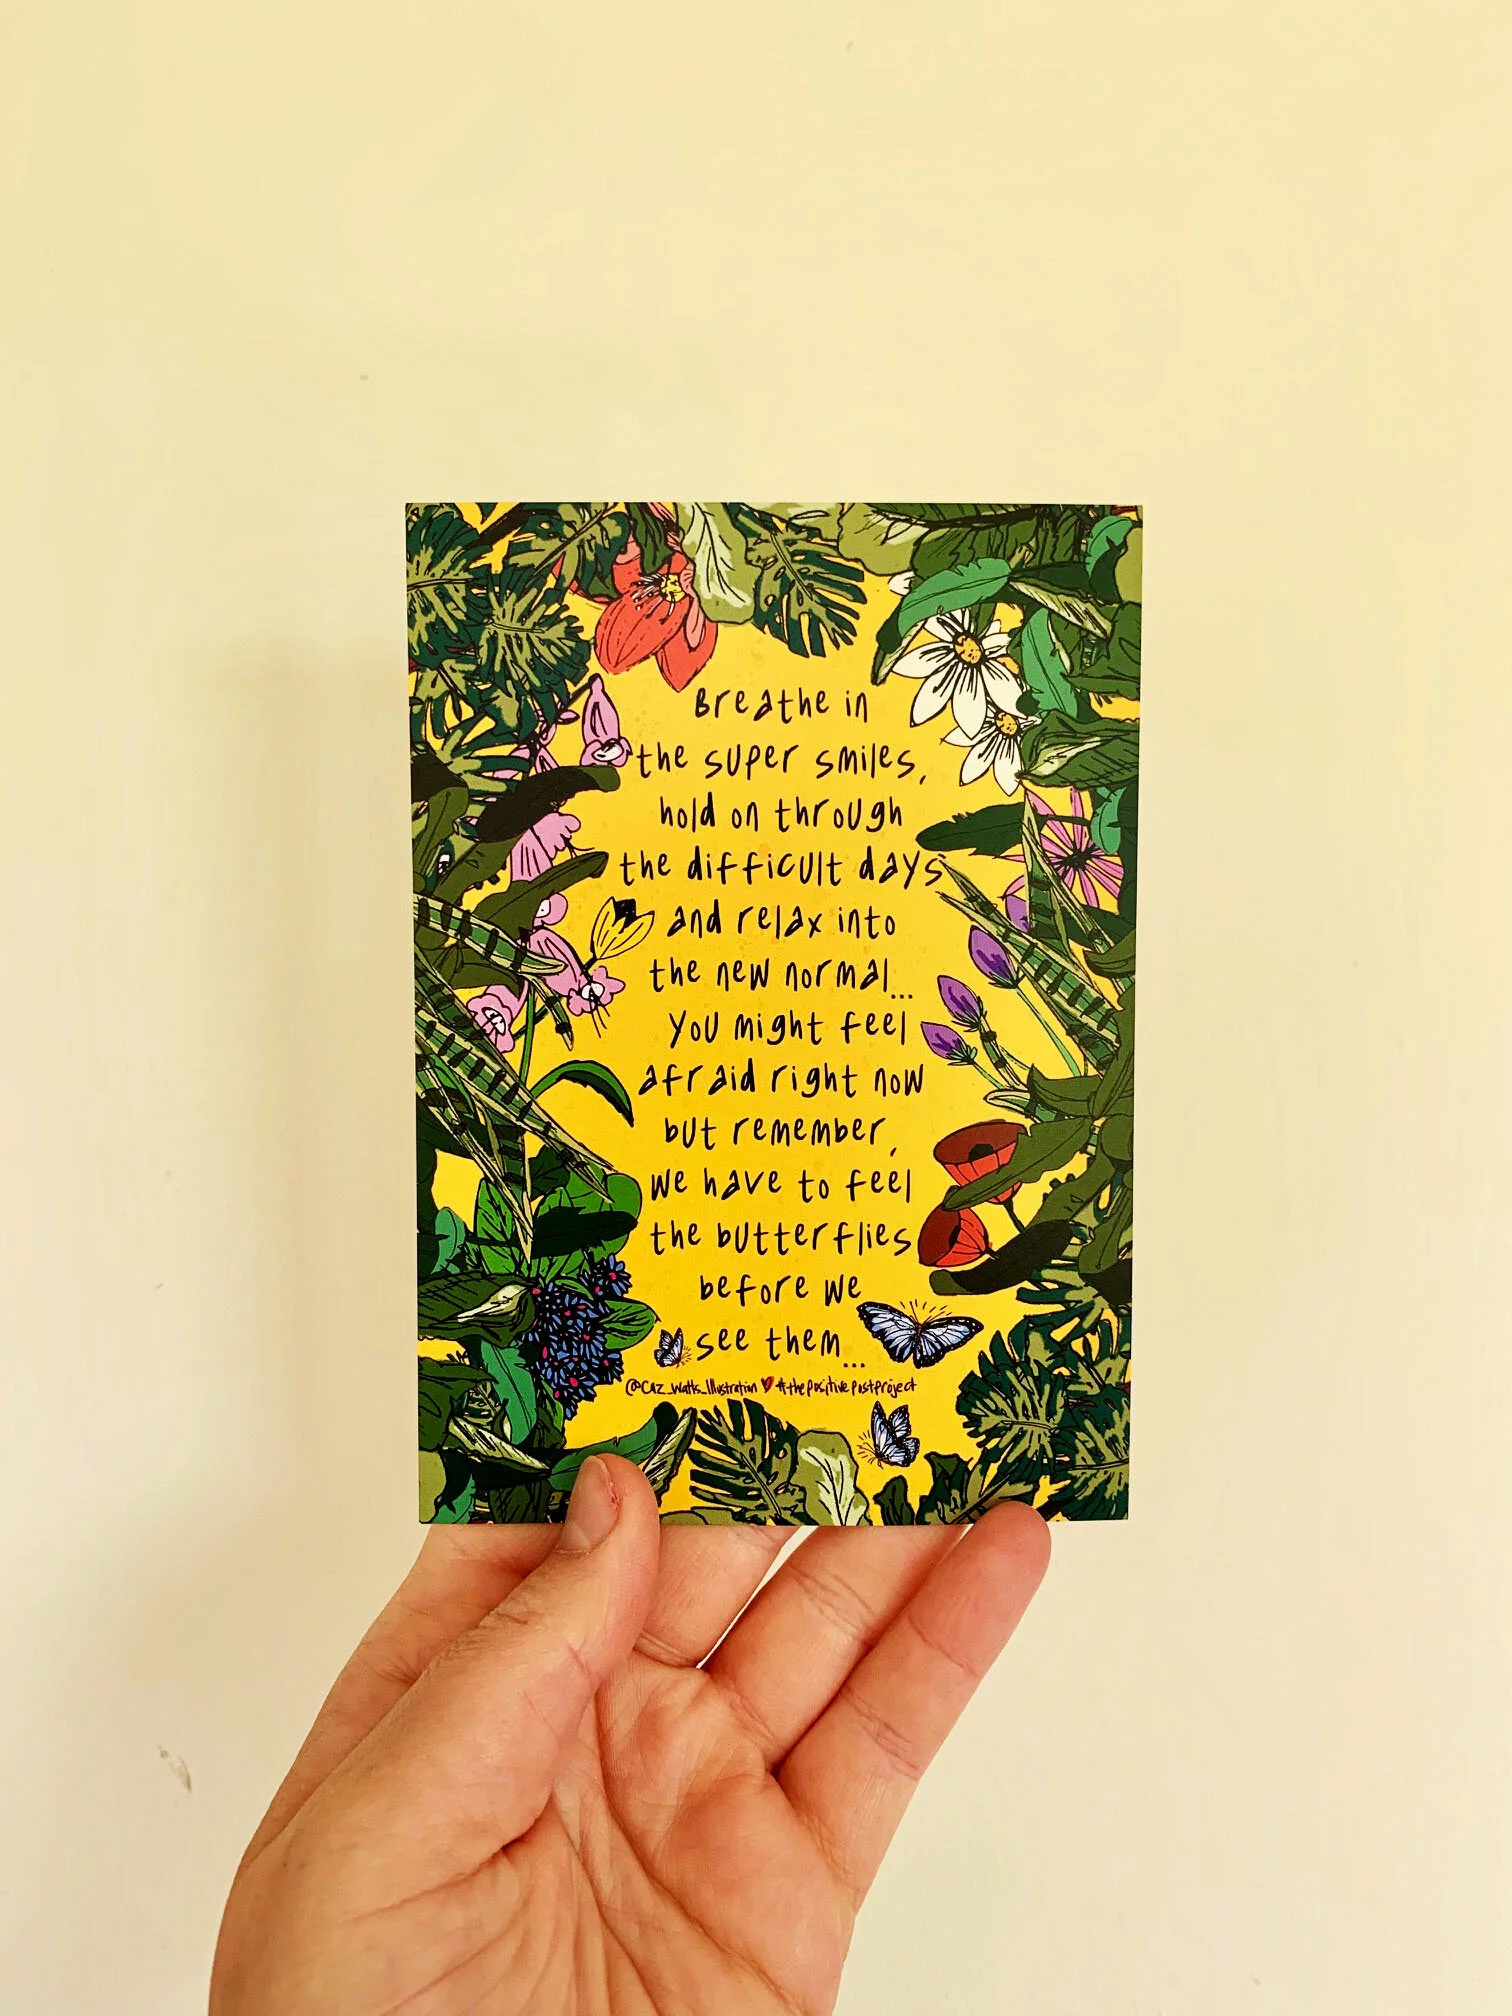 Breathe in
the super smiles,
hold on through
the difficult days
and relax into
the new normal...
you might feel
afraid right now
but remember,
we have to feel
the butterflies
before we
see them...
@Caz_Watts_Illustration ♥ #thepositivepostproject